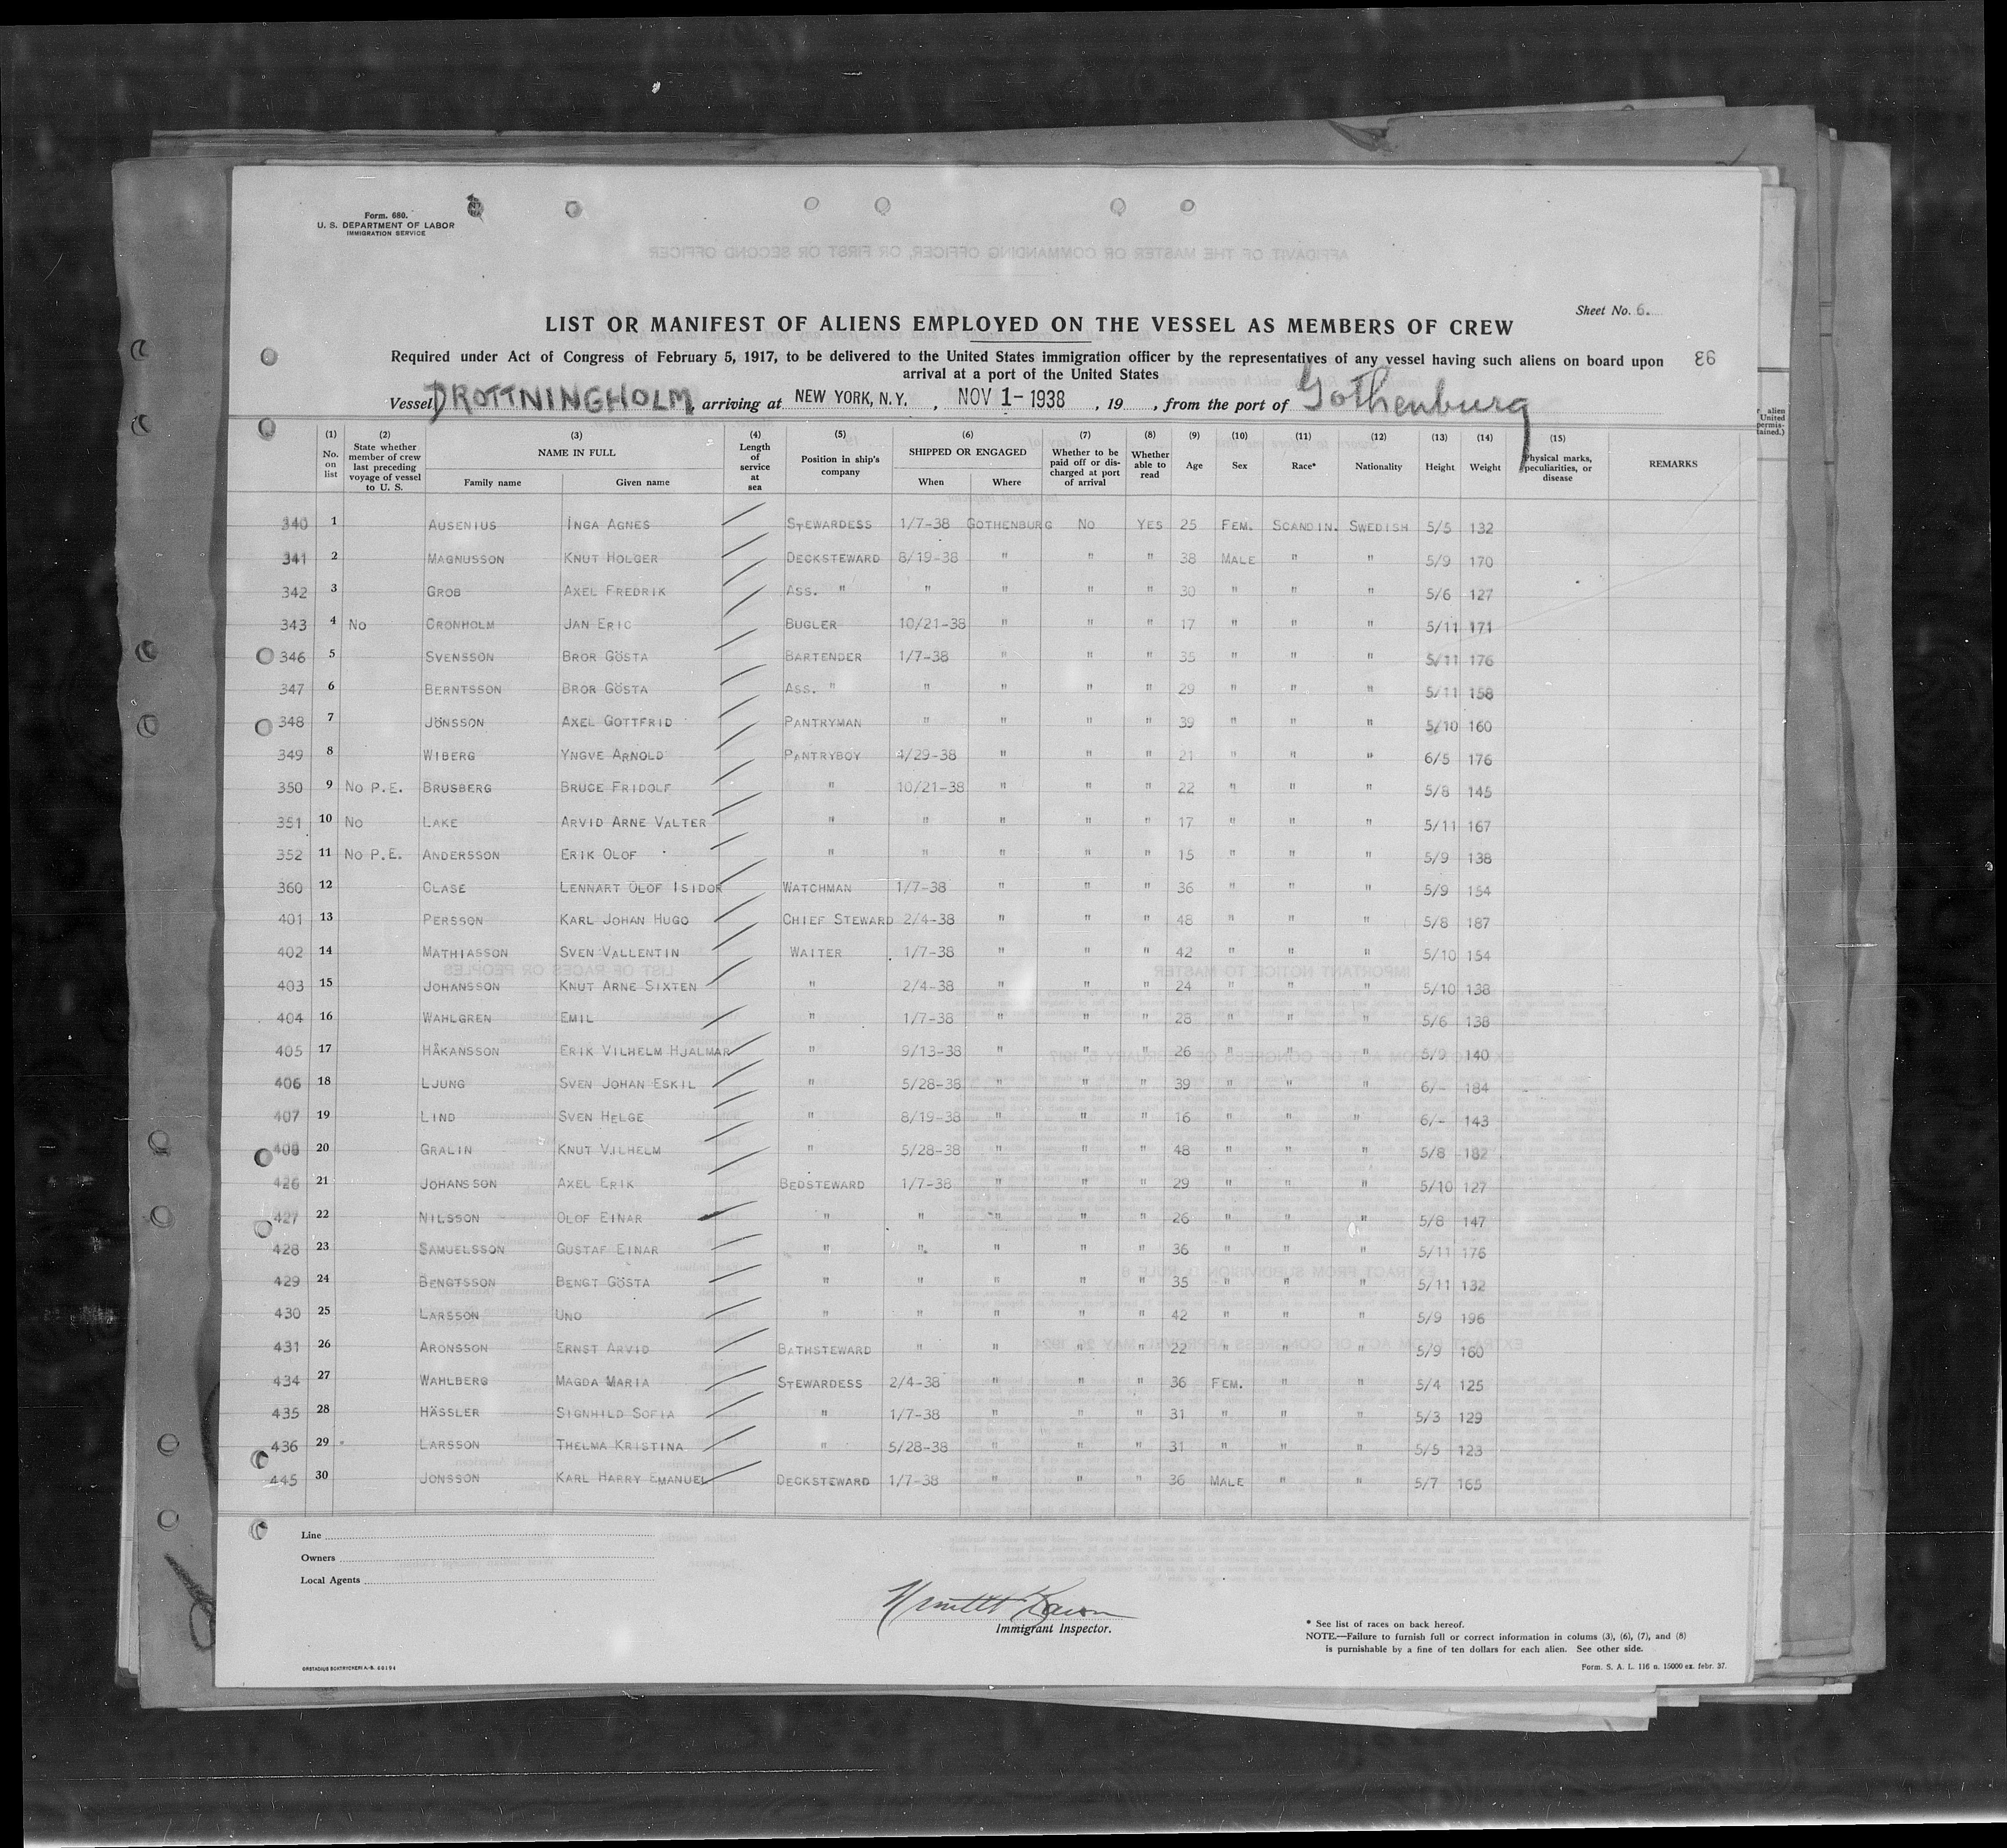 Form. 680.
U. S. DEPARTMENT OF LABOR
IMMIGRATION SERVICE
Sheet No. 6.
LIST OR MANIFEST OF ALIENS EMPLOYED ON THE VESSEL AS MEMBERS OF CREW
Required under Act of Congress of February 5, 1917, to be delivered to the United States immigration officer by the representatives of any vessel having such aliens on board upon
arrival at a port of the United States
Vessel DROTTNINGHOLM, arriving at NEW YORK, N.Y., NOV 1-1938, 19, from the port of Gothenburg
(1) No. on list (2) State whether member of crew last preceding voyage of vessel to U. S. (3) NAME IN FULL Family name Given name (4) Length of service at sea (5) Position in ship's company (6) SHIPPED OR ENGAGED When Where (7) Whether to be paid off or discharged at port of arrival (8) Whether able to read (9) Age (10) Sex (11) Race* (12) Nationality (13) Height (14) Weight (15) Physical marks, peculiarities, or disease REMARKS
340 1 AUSENIUS INGA AGNES STEWARDESS 1/7-38 GOTHENBURG NO YES 25 FEM. SCANDIN. SWEDISH 5/5 132
341 2 MAGNUSSON KNUT HOLGER DECKSTEWARD 8/19-38 " " " 38 MALE " " 5/9 170
342 3 GROB AXEL FREDRIK ASS. " " " " " 30 " " " 5/6 127
343 4 NO CRONHOLM JAN ERIC BUGLER 10/21-38 " " " 17 " " " 5/11 171
346 5 SVENSSON BROR GÖSTA BARTENDER 1/7-38 " " " 35 " " " 5/11 176
347 6 BERNTSSON BROR GÖSTA ASS. " " " " " 29 " " " 5/11 158
348 7 JÖNSSON AXEL GOTTFRID PANTRYMAN " " " " 39 " " " 5/10 160
349 8 WIBERG YNGVE ARNOLD PANTRYBOY 4/29-38 " " " 21 " " " 6/5 176
350 9 NO P.E. BRUSBERG BRUCE FRIDOLF " 10/21-38 " " " 22 " " " 5/8 145
351 10 NO LAKE ARVID ARNE VALTER " " " " " 17 " " " 5/11 167
352 11 NO P.E. ANDERSSON ERIK OLOF " " " " " 15 " " " 5/9 138
360 12 CLASE LENNART OLOF ISIDOR WATCHMAN 1/7-38 " " " 36 " " " 5/9 154
401 13 PERSSON KARL JOHAN HUGO CHIEF STEWARD 2/4-38 " " " 48 " " " 5/8 187
402 14 MATHIASSON SVEN VALLENTIN WAITER 1/7-38 " " " 42 " " " 5/10 154
403 15 JOHANSSON KNUT ARNE SIXTEN " 2/4-38 " " " 24 " " " 5/10 138
404 16 WAHLGREN EMIL " 1/7-38 " " " 28 " " " 5/6 138
405 17 HÅKANSSON ERIK VILHELM HJALMAR " 9/13-38 " " " 26 " " " 5/9 140
406 18 LJUNG SVEN JOHAN ESKIL " 5/28-38 " " " 39 " " " 6/- 184
407 19 LIND SVEN HELGE " 8/19-38 " " " 16 " " " 6/- 143
408 20 GRALIN KNUT VILHELM " 5/28-38 " " " 48 " " " 5/8 182
426 21 JOHANSSON AXEL ERIK BEDSTEWARD 1/7-38 " " " 29 " " " 5/10 127
427 22 NILSSON OLOF EINAR " " " " " 26 " " " 5/8 147
428 23 SAMUELSSON GUSTAF EINAR " " " " " 36 " " " 5/11 176
429 24 BENGTSSON BENGT GÖSTA " " " " " 35 " " " 5/11 132
430 25 LARSSON UNO " " " " " 42 " " " 5/9 196
431 26 ARONSSON ERNST ARVID BATHSTEWARD " " " " 22 " " " 5/9 160
434 27 WAHLBERG MAGDA MARIA STEWARDESS 2/4-38 " " " 36 FEM. " " 5/4 125
435 28 HÄSSLER SIGNHILD SOFIA " 1/7-38 " " " 31 " " " 5/3 129
436 29 LARSSON THELMA KRISTINA " 5/28-38 " " " 31 " " " 5/5 123
445 30 JONSSON KARL HARRY EMANUEL DECKSTEWARD 1/7-38 " " " 36 MALE " " 5/7 165
Line
Owners
Local Agents
Immigrant Inspector.
* See list of races on back hereof.
NOTE.—Failure to furnish full or correct information in colums (3), (6), (7), and (8)
is punishable by a fine of ten dollars for each alien. See other side.
Form. S. A. L. 116 n. 15000 ex. febr. 37.